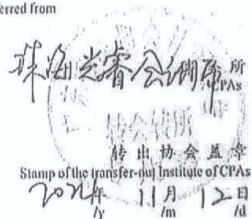 erred from
珠海光睿会师事 所
CPAs
转出协会盖章
Stamp of the transfer-out Institute of CPAs
年 11月 12日
/y /m /d